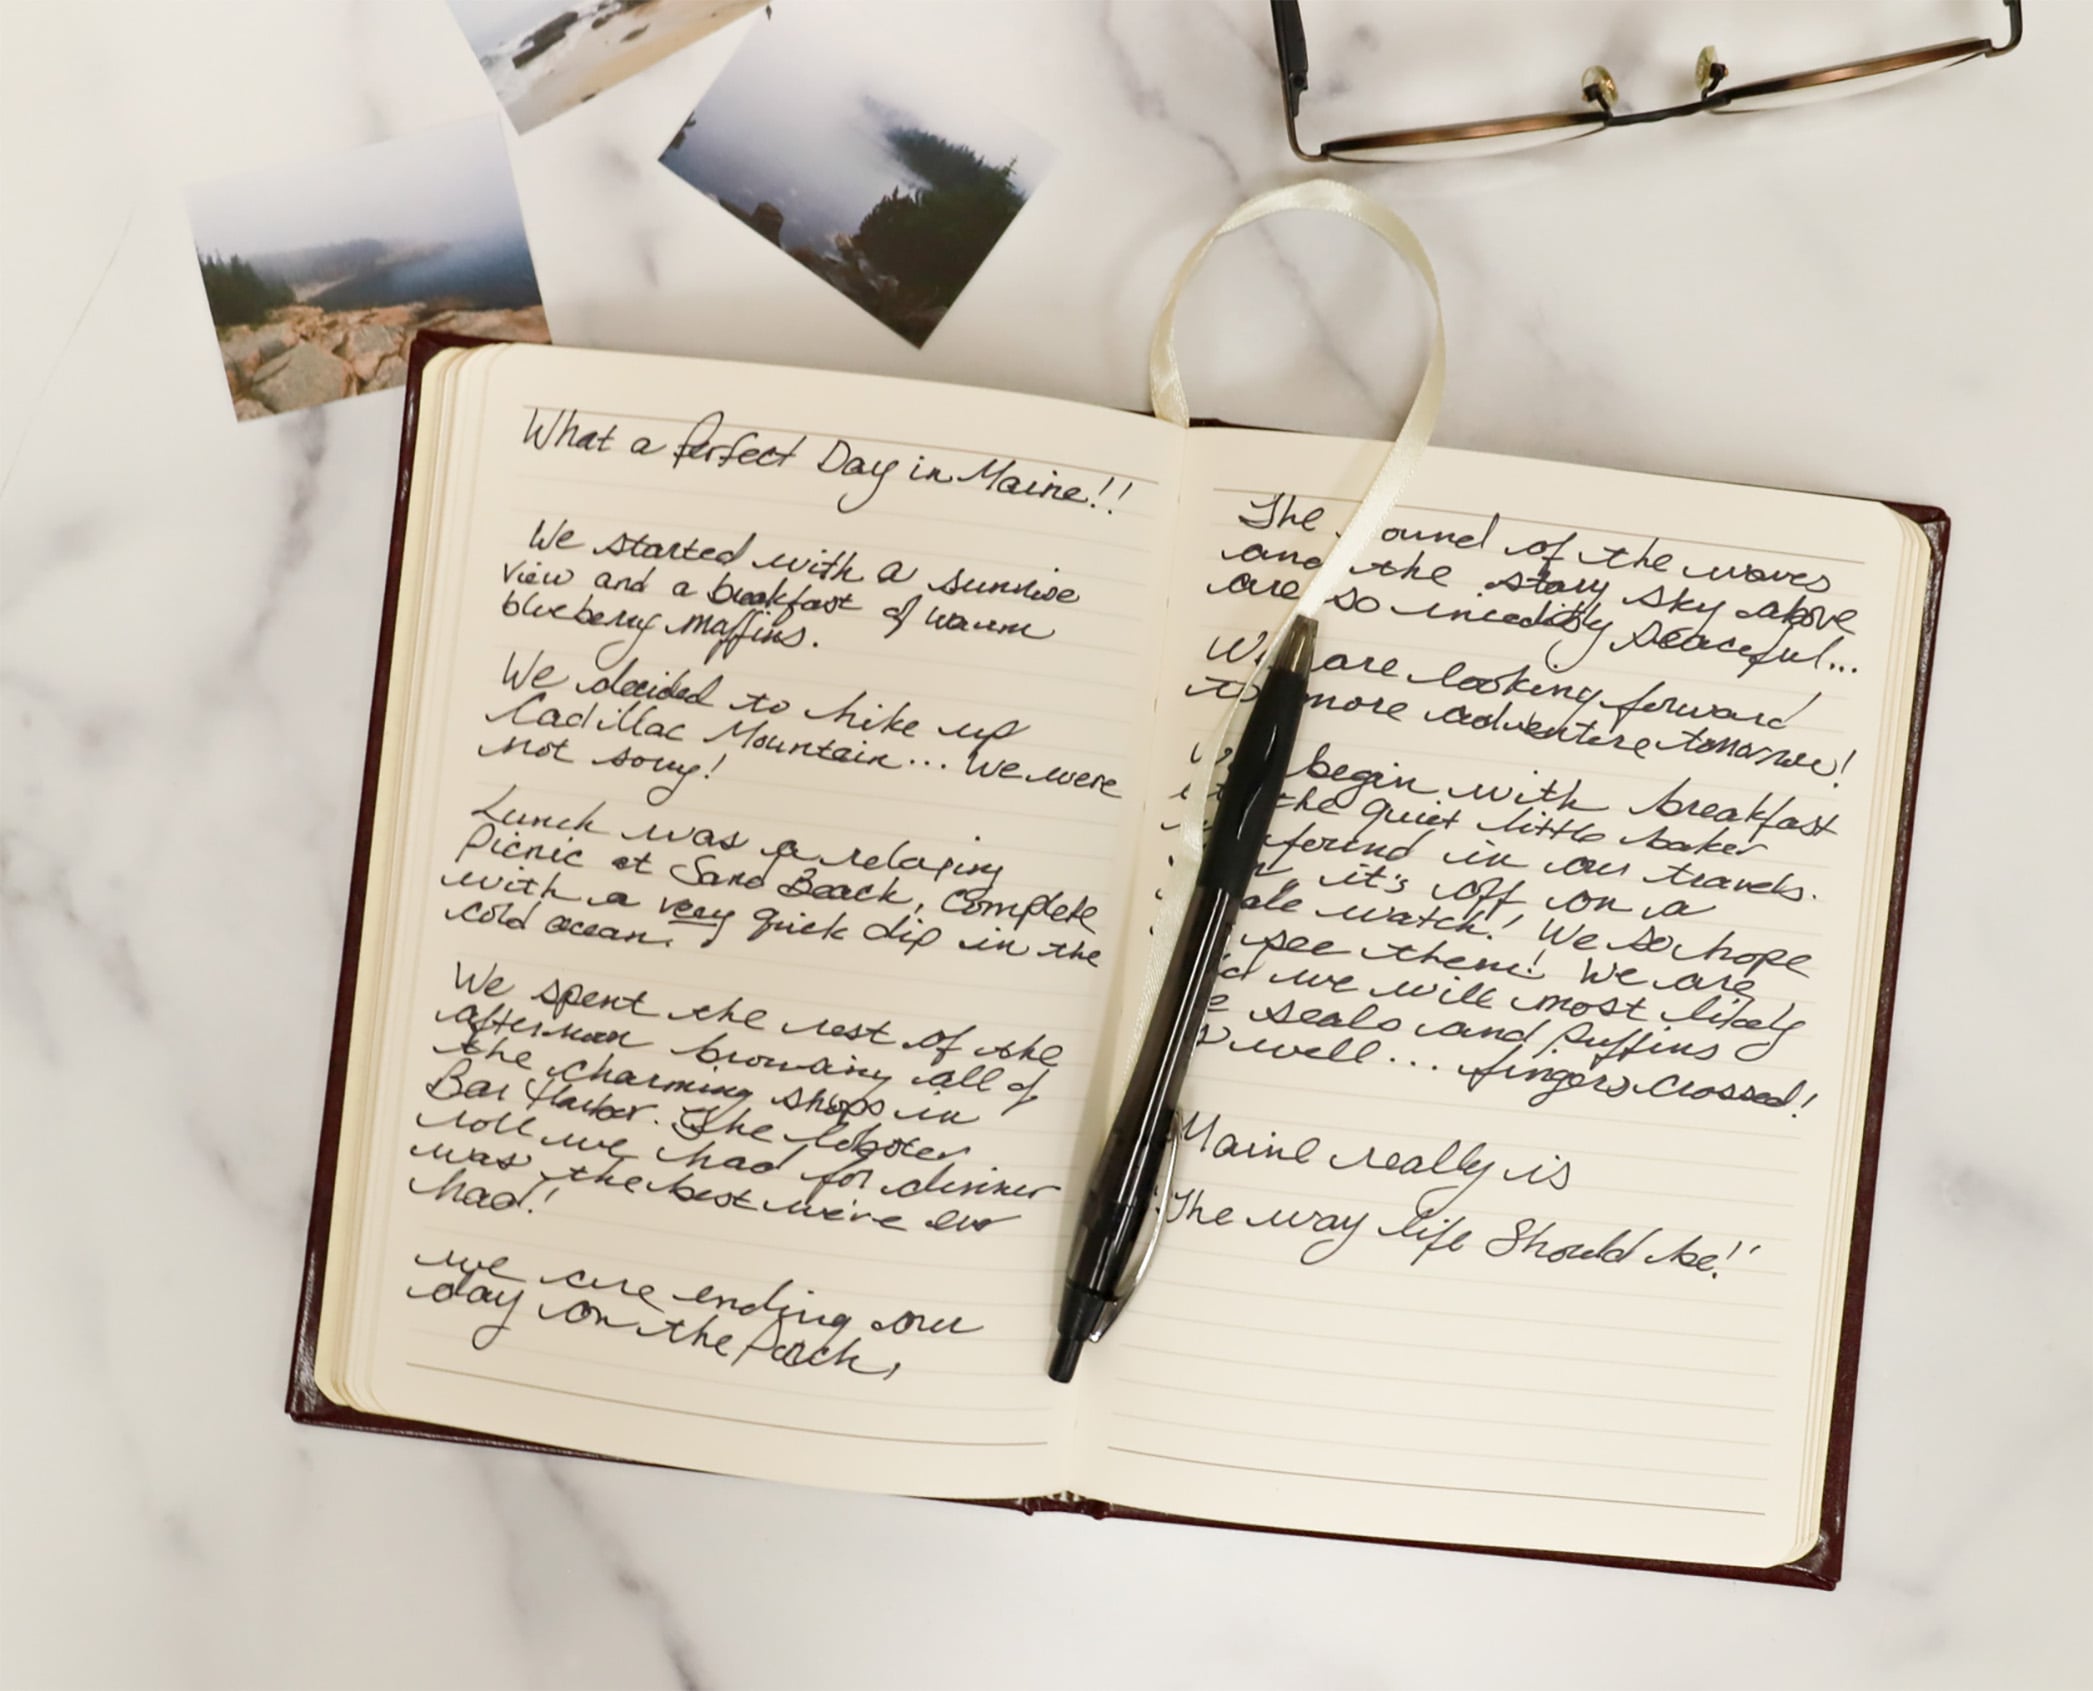 What a Perfect Day in Maine!!
We started with a sunrise
view and a breakfast of warm
blueberry muffins.
We decided to hike up
Cadillac Mountain... We were
not sorry!
Lunch was a relaxing
Picnic at Sand Beach, complete
with a very quick dip in the
cold ocean.
We spent the rest of the
afternoon browsing all of
the charming shops in
Bar Harbor. The lobster
roll we had for dinner
was the best we've ever
had!
we are ending our
day on the Porch,
The ound of the waves
and the starry sky above
are so incredibly peaceful...
We are looking forward
to more adventure tomorrow!
begin with breakfast
the quiet little baker
found in our travels.
it's off on a
ale watch! We so hope
see them! We are
we will most likely
seals and Puffins
well... fingers crossed!
Maine really is
"The way life Should be!"